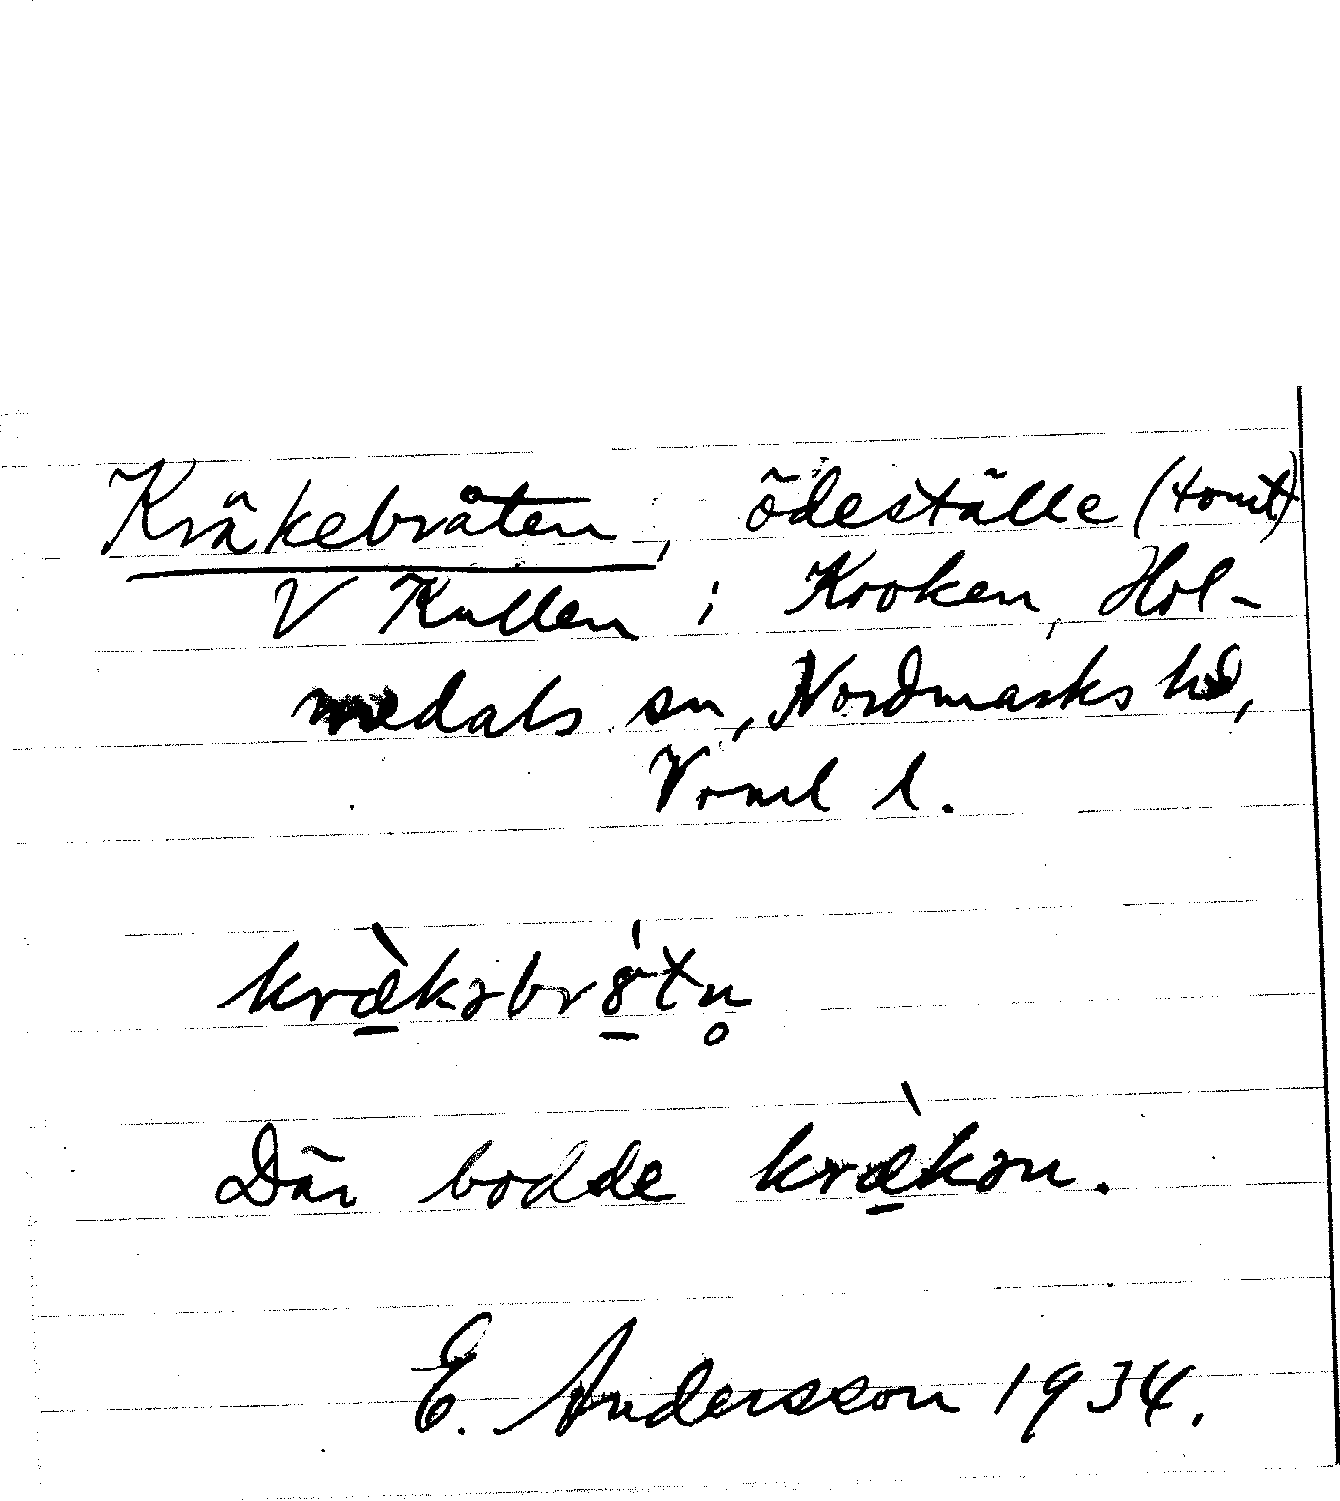 Kräkebråten, ödeställe (tomt)
V Kullen i Kroken, Hol-
medals sn, Nordmarks hd,
Vrml l.
kræ̀kəbrótn̥
Där bodde kræ̀kən.
E. Andersson 1934.